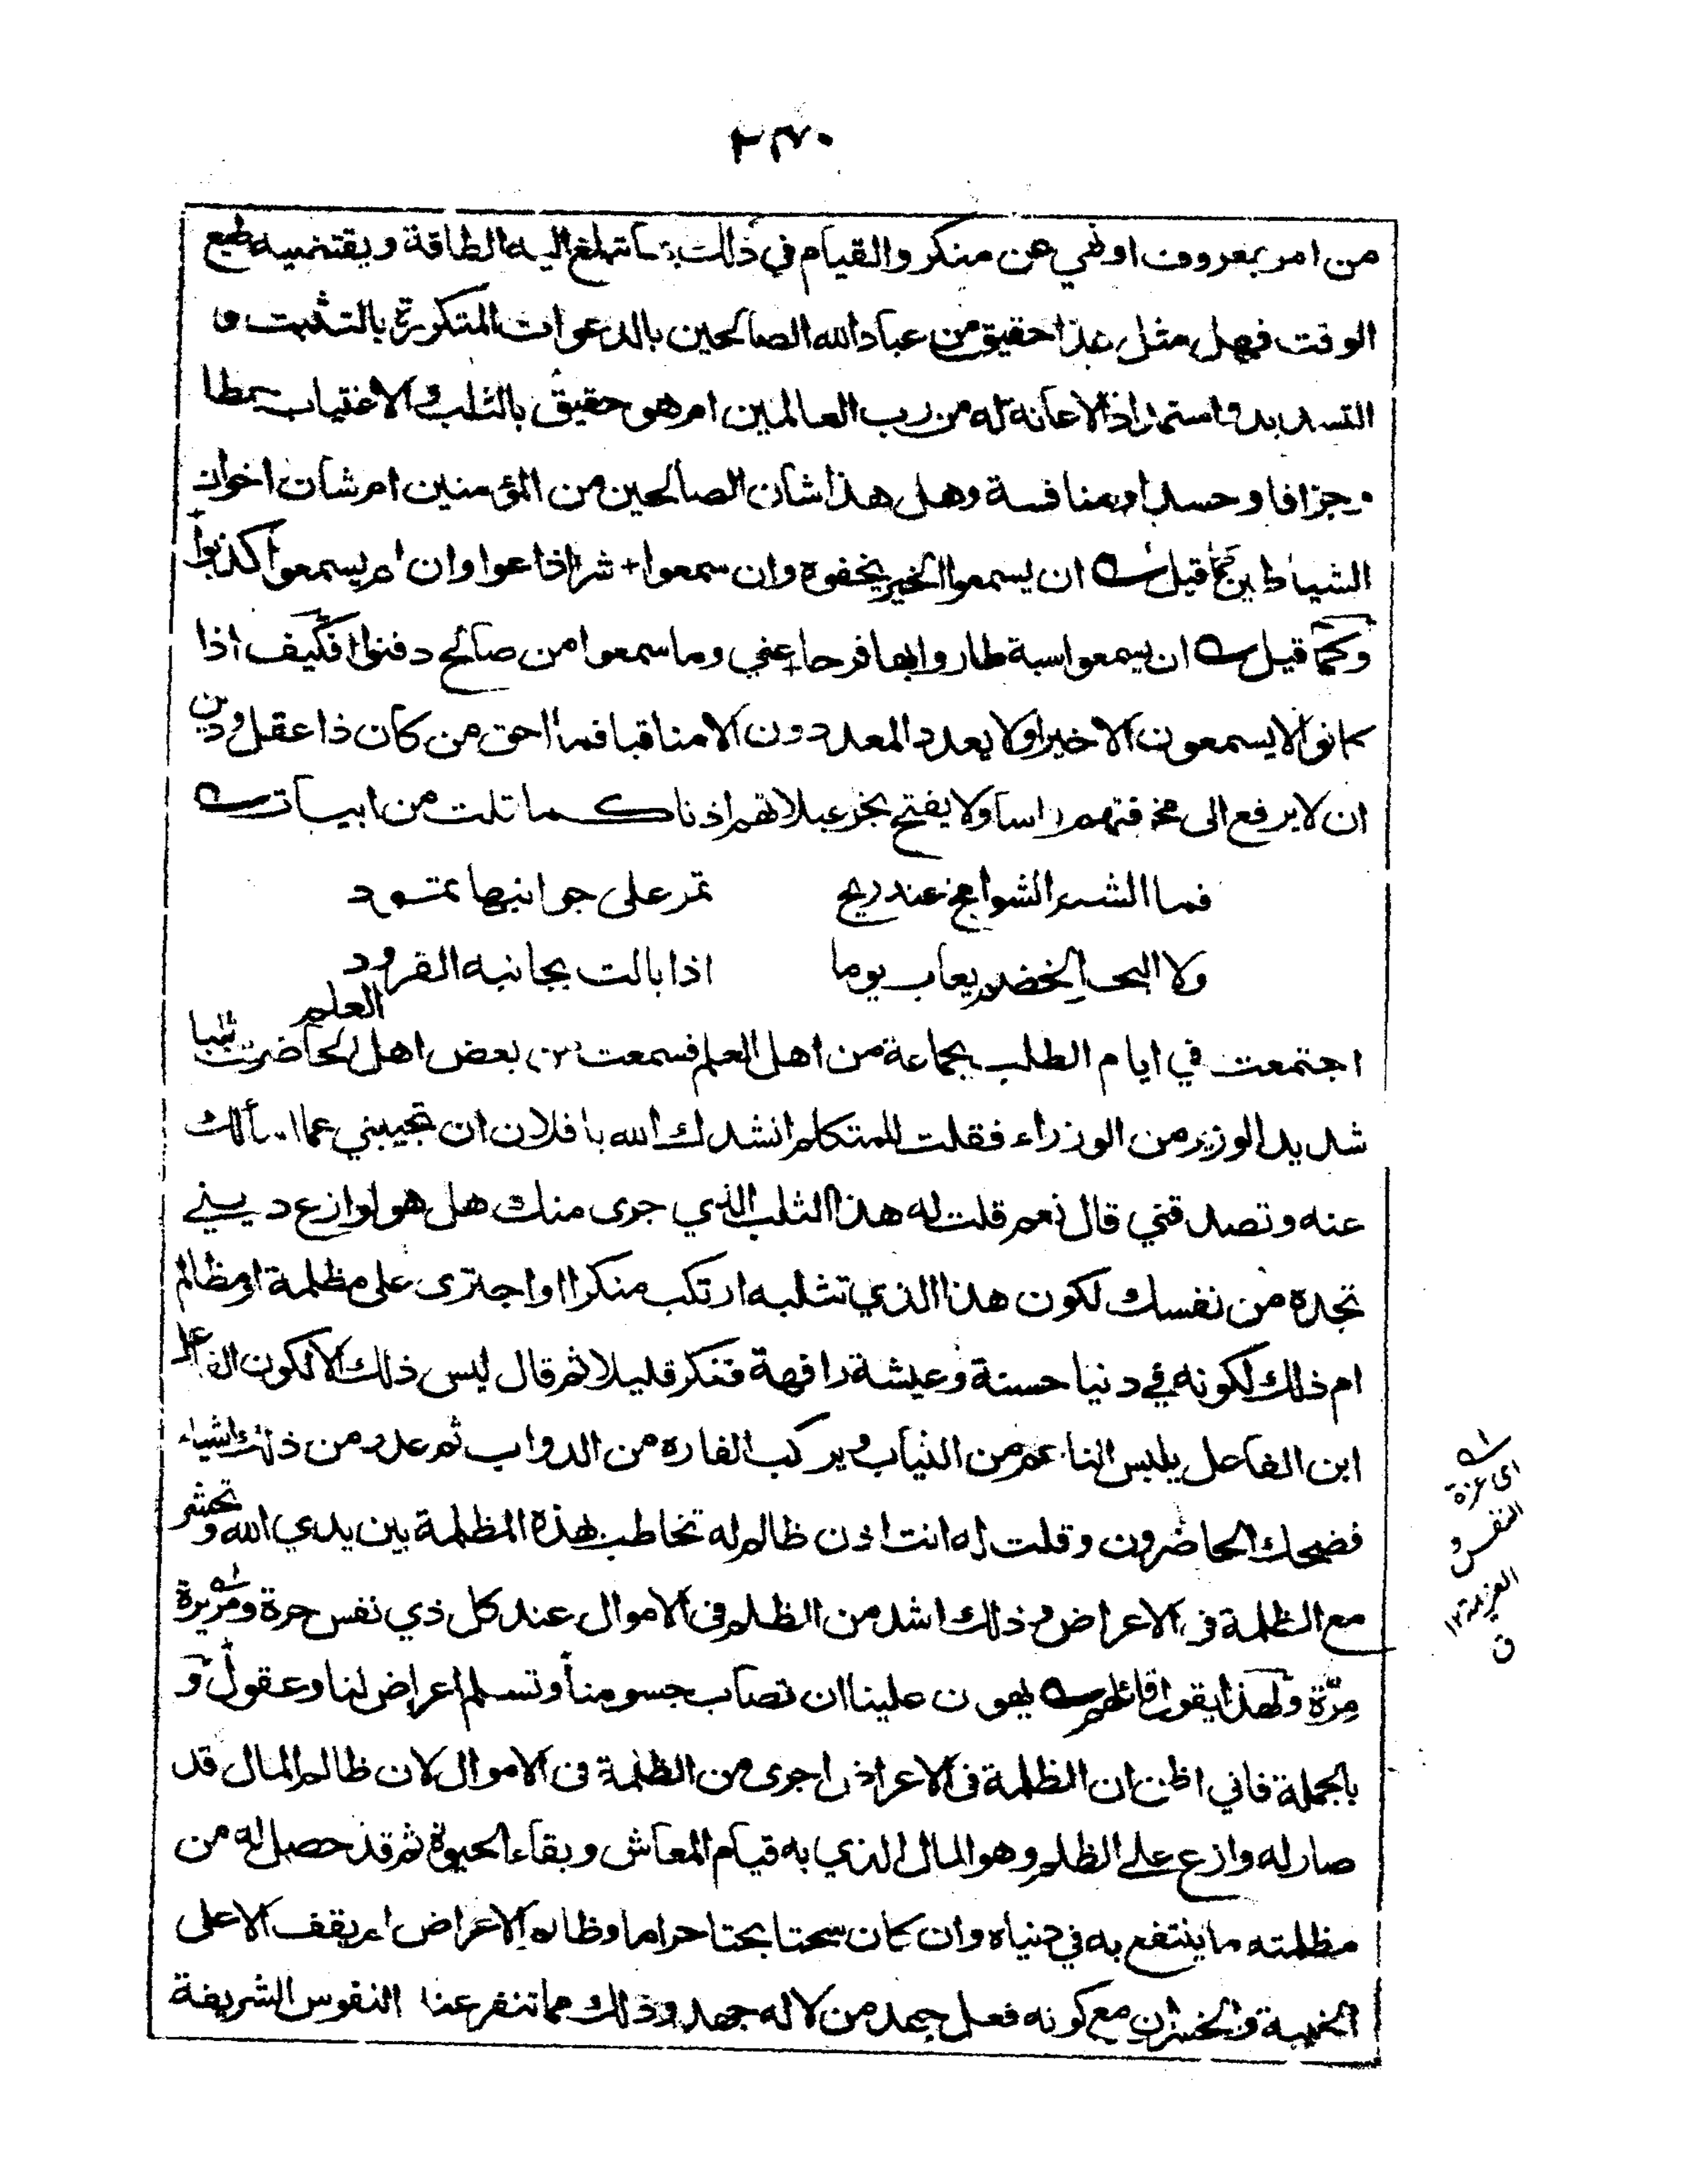 ٢٣٧٠
من امر بمعروف او نهي عن منكر والقيام في ذلك بما تبلغ اليه الطاقة ويقتضيه طبع
الوقت فهل مثل هذا حقيق من عباد الله الصالحين بالدعوات المتكررة بالتثبت و
التسديد واستمداد الاعانة له من رب العالمين ام هو حقيق بالثلب والاغتياب
وجزافا وحسدا ومنافسة وهل هذا شان الصالحين من المؤمنين ام شان اخوان
الشياطين كما قيل ان يسمعوا الخير يخفوه وان سمعوا + شرا اذاعوا وان لم يسمعوا كذبوا
وكما قيل ان يسمعوا سبة طاروا بها فرحا عني وما سمعوا من صالح دفنوا فكيف اذا
كانوا لا يسمعون الا خيرا ولا يعدد المعددون الا مناقبا فما احق من كان ذا عقل ودين
ان لا يرفع الى مخرقتهم راسا ولا يفتح بخزعبلاتهم اذنا كما قلت من ابيات
فما الشم الشوامخ عند ريح تمر على جوانبها تمود
ولا البحر الخضم يعاب يوما اذا بالت بجانبه القرود
اجتمعت في ايام الطلب بجماعة من اهل العلم فسمعت من بعض اهل العلم الحاضرين ثلبا
شديدا لوزير من الوزراء فقلت للمتكلم انشدك الله يا فلان ان تجيبني عما اسألك
عنه وتصدقني قال نعم قلت له هذا الثلب الذي جرى منك هل هو لوازع ديني
تجده من نفسك لكون هذا الذي تثلبه ارتكب منكرا او اجترى على مظلمة او مظالم
ام ذلك لكونه في دنيا حسنة وعيشة رافهة ففكر قليلا ثم قال ليس ذلك الا لكون الفاعل
ابن الفاعل يلبس الناعم من الثياب ويركب الفاره من الدواب ثم عدد من ذلك اشياء
فضحك الحاضرون وقلت له انت اذن ظالم له تخاطب بهذه المظلمة بين يدي الله وتحشر
مع الظلمة في الاعراض وذلك اشد من الظلم في الاموال عند كل ذي نفس حرة ومريرة
مرّة ولهذا يقول قائلهم يهون علينا ان تصاب جسومنا وتسلم اعراض لنا وعقول و
بالجملة فاني اظن ان الظلمة في الاعراض اجرى من الظلمة في الاموال لان ظالم المال قد
صار له وازع على الظلم وهو المال الذي به قيام المعاش وبقاء الحيوة ثم قد حصل له من
مظلمته ما ينتفع به في دنياه وان كان سحتا بحتا حراما وظالم الاعراض لم يقف الا على
الخيبة والخسران مع كونه فعل جهد من لا له جهد وذلك مما تنفر عنه النفوس الشريفة
اى عزة
النفس و
العزيمة ١٢
ن